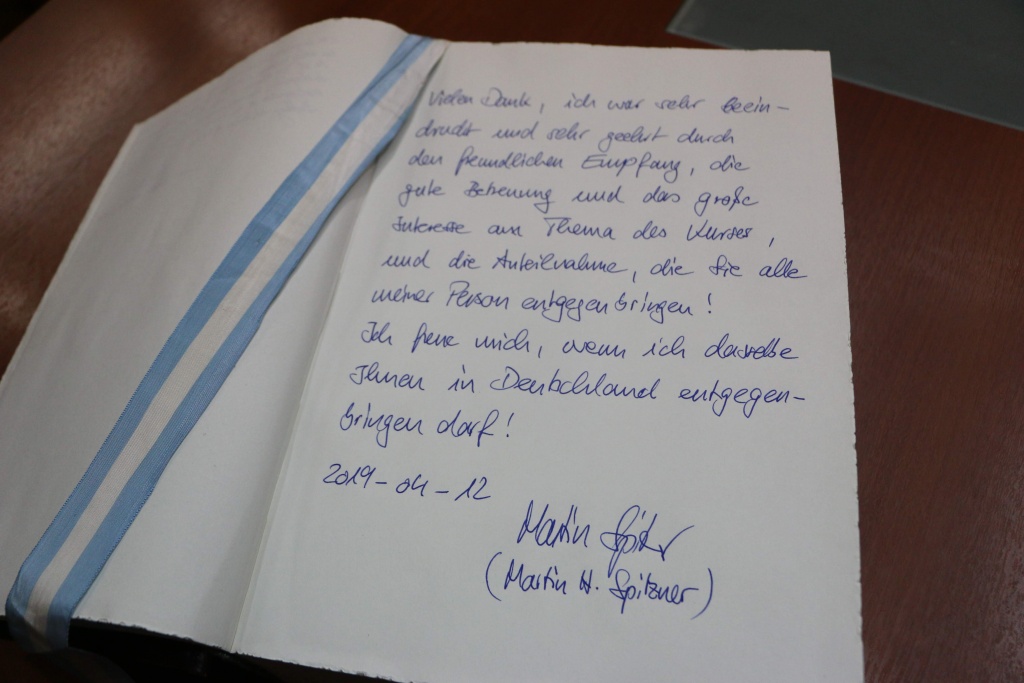 Vielen Dank, ich war sehr beein-
druckt und sehr geehrt durch
den freundlichen Empfang, die
gute Betreuung und das große
Interesse am Thema des Kurses,
und die Anteilnahme, die Sie alle
meiner Person entgegenbringen!
Ich freue mich, wenn ich dasselbe
Ihnen in Deutschland entgegen-
bringen darf!
2019-04-12
Martin Spitzner
(Martin H. Spitzner)